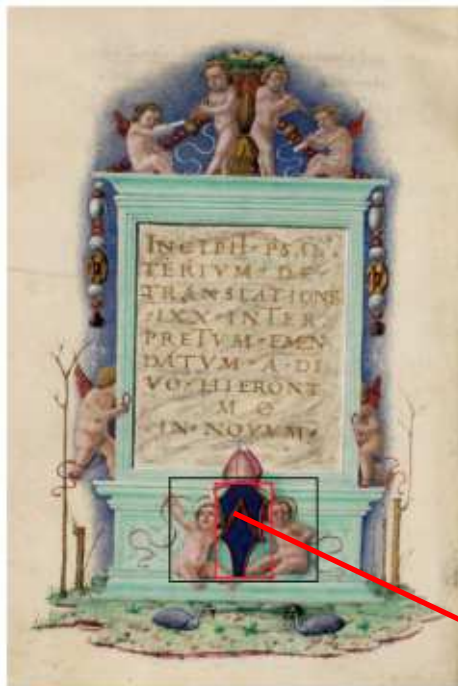 INCIPIT·PSAL
TERIVM·DE·
TRANSLATIONE
·LXX·INTER·
PRETVM·EMEN
DATVM·A·DI
VO·HIERONY
MO
IN·NOVVM·